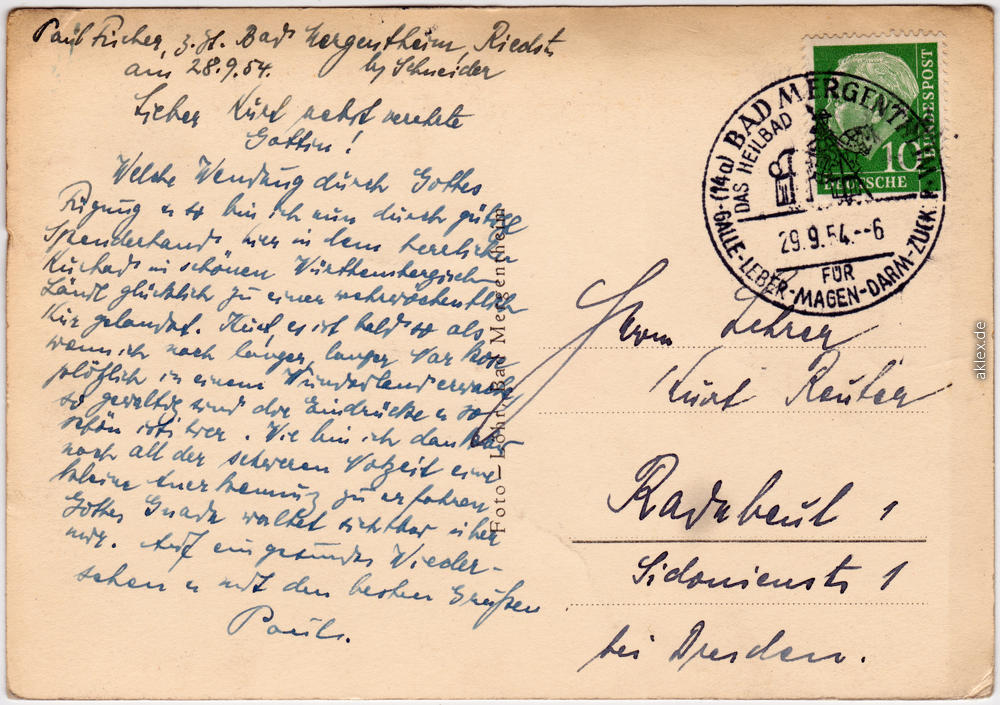 Paul Fischer, z. Zt. Bad Mergentheim, Riedstr.
am 28.9.54. by Schneider
Lieber Kurt nebst verehrte
Gattin!
Welche Wendung durch Gottes
Fügung u so bin ich nun durch gütige
Spenderhand hier in dem herrlichen
Kurbad im schönen Württembergisch.
Ländl glücklich zu einer mehrwöchentlich
Kur gelandet. Kurt, es ist bald so als
wenn ich nach langer, langer
plötzlich in einem Wunderland erwache
so gewaltig sind die Eindrücke u so
schön ists hier. Wie bin ich dankbar
nach all der schweren Notzeit eine
kleine Anerkennung zu erfahren
Gottes Gnade waltet sichtbar über
mir. Auf ein gesundes Wieder-
sehen u mit den besten Grüßen
Paul.
Foto - Löhr, Bad Mergentheim
DEUTSCHE BUNDESPOST
10
(14a) BAD MERGENTHEIM
DAS HEILBAD
29.9.54.--6
FÜR
GALLE-LEBER-MAGEN-DARM-ZUCKER
Herrn Lehrer
Kurt Reuter
Radebeul 1
Sidonienstr 1
bei Dresden.
aklex.de